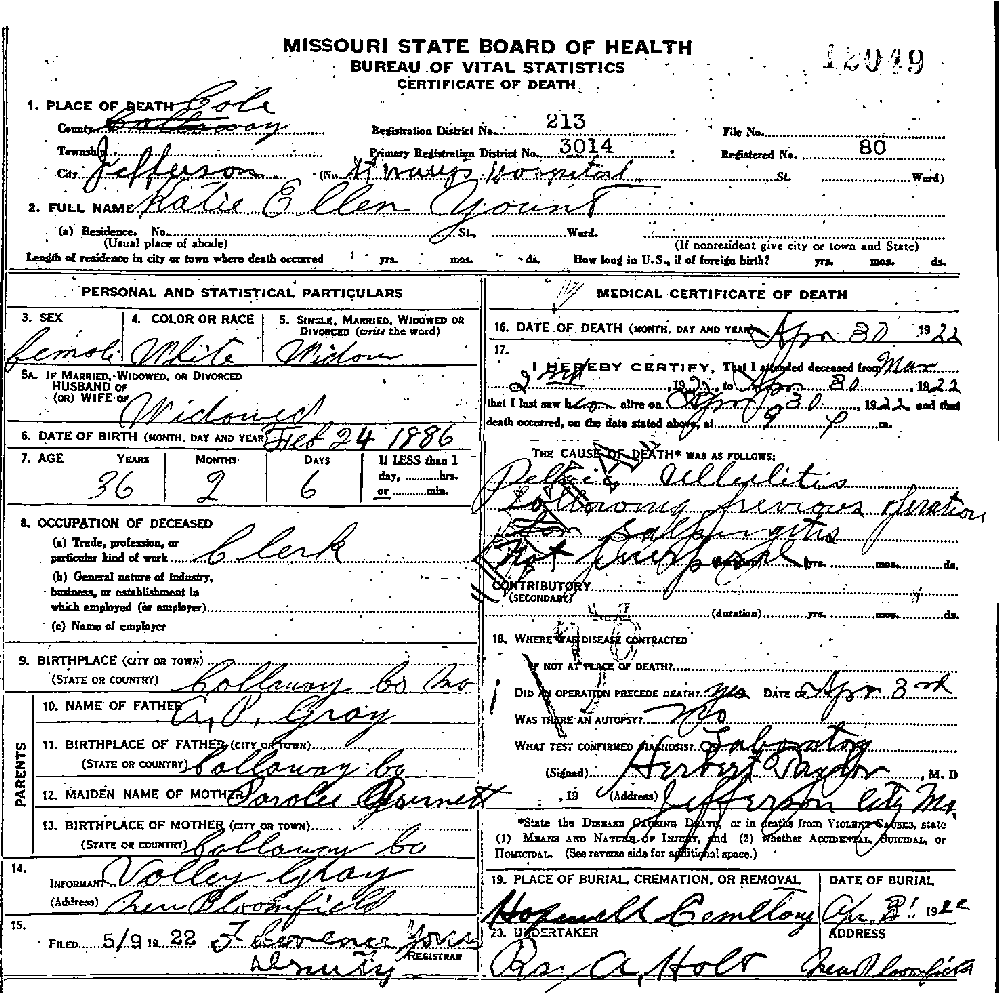 MISSOURI STATE BOARD OF HEALTH
BUREAU OF VITAL STATISTICS
CERTIFICATE OF DEATH
12049
1. PLACE OF DEATH Cole
County Callaway Registration District No. 213 File No.
Township Primary Registration District No. 3014 Registered No. 80
City Jefferson (No. St Marys Hospital St. Ward)
2. FULL NAME Katie Ellen Yount
(a) Residence. No. St., Ward.
(Usual place of abode) (If nonresident give city or town and State)
Length of residence in city or town where death occurred yrs. mos. ds. How long in U.S., if of foreign birth? yrs. mos. ds.
PERSONAL AND STATISTICAL PARTICULARS
3. SEX 4. COLOR OR RACE 5. SINGLE, MARRIED, WIDOWED OR DIVORCED (write the word)
female White Widow
5A. IF MARRIED, WIDOWED, OR DIVORCED
HUSBAND OF
(OR) WIFE OF Widowed
6. DATE OF BIRTH (MONTH, DAY AND YEAR) Feb 24 1886
7. AGE YEARS MONTHS DAYS If LESS than 1
day, hrs.
or min.
36 2 6
8. OCCUPATION OF DECEASED
(a) Trade, profession, or
particular kind of work Clerk
(b) General nature of industry,
business, or establishment in
which employed (or employer)
(c) Name of employer
9. BIRTHPLACE (CITY OR TOWN)
(STATE OR COUNTRY) Callaway Co Mo
PARENTS
10. NAME OF FATHER A. P. Gray
11. BIRTHPLACE OF FATHER (CITY OR TOWN)
(STATE OR COUNTRY) Callaway Co
12. MAIDEN NAME OF MOTHER
13. BIRTHPLACE OF MOTHER (CITY OR TOWN)
(STATE OR COUNTRY) Callaway Co
14.
INFORMANT Volley Gray
(Address) New Bloomfield
15.
FILED 5/9 1922
Deputy REGISTRAR
MEDICAL CERTIFICATE OF DEATH
16. DATE OF DEATH (MONTH, DAY AND YEAR) Apr 30 1922
17.
I HEREBY CERTIFY, That I attended deceased from Mar
2nd, 1922, to Apr 30, 1922
that I last saw her alive on Apr 30, 1922 and that
death occurred, on the date stated above, at 9 m.
THE CAUSE OF DEATH* WAS AS FOLLOWS:
Pelvic Cellulitis
following previous operation
for salpingitis
Not Puerperal yrs. mos. ds.
CONTRIBUTORY
(SECONDARY)
(duration) yrs. mos. ds.
18. WHERE WAS DISEASE CONTRACTED
IF NOT AT PLACE OF DEATH?
DID AN OPERATION PRECEDE DEATH? yes DATE OF Apr 3rd
WAS THERE AN AUTOPSY? no
WHAT TEST CONFIRMED DIAGNOSIS? Laboratory
(Signed) Herbert Taylor, M. D
, 19 (Address) Jefferson City Mo.
*State the DISEASE CAUSING DEATH, or in deaths from VIOLENT CAUSES, state
(1) MEANS AND NATURE OF INJURY, and (2) whether ACCIDENTAL, SUICIDAL, or
HOMICIDAL. (See reverse side for additional space.)
19. PLACE OF BURIAL, CREMATION, OR REMOVAL DATE OF BURIAL
Hopewell Cemetery 1922
20. UNDERTAKER ADDRESS
A. Holt New Bloomfield